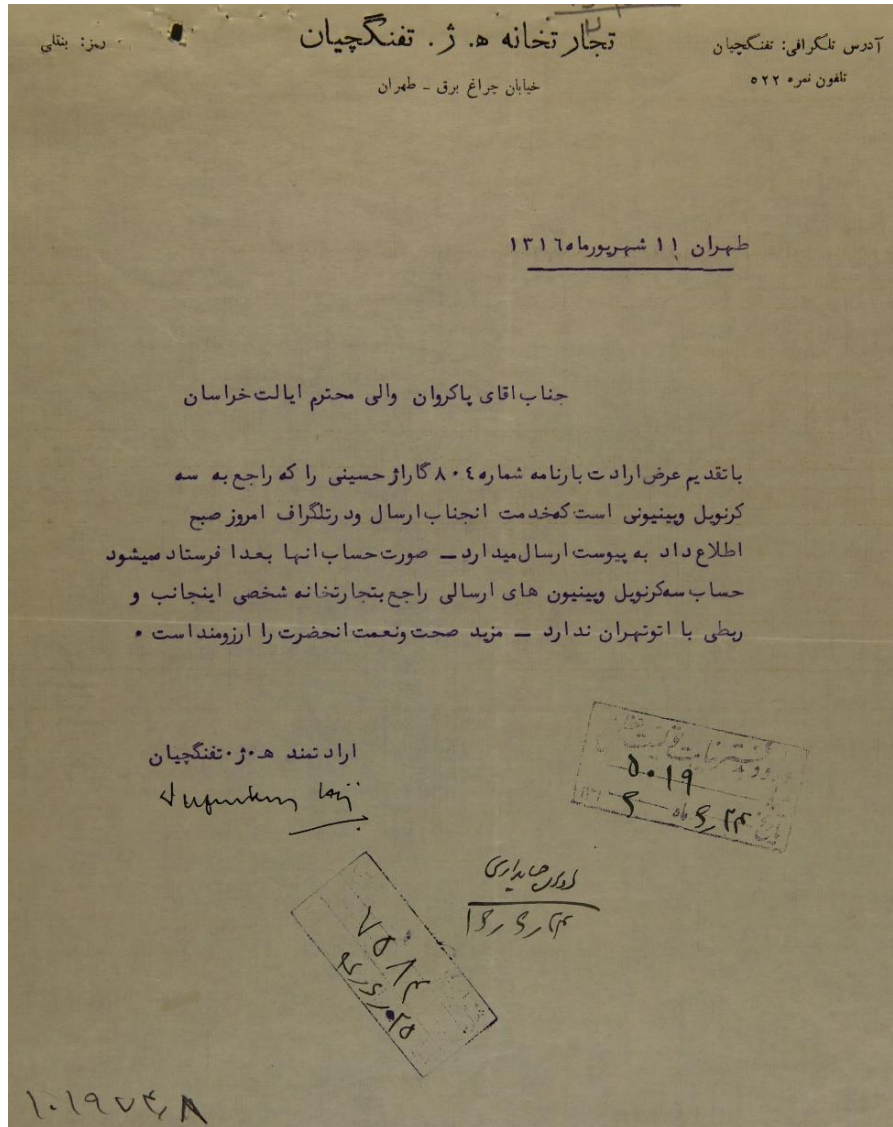 تجارتخانه ه. ژ. تفنگچیان
خیابان چراغ برق ـ طهران
آدرس تلگرافی: تفنگچیان
تلفون نمره ۵۲۲
رمز: بنتلی
طهران ۱۱ شهریورماه ۱۳۱٦
جناب اقای پاکروان والی محترم ایالت خراسان
باتقدیم عرض ارادت بارنامه شماره ۸۰٤ گاراژ حسینی را که راجع به سه
کرنویل وپینیونی است که خدمت انجناب ارسال ودرتلگراف امروز صبح
اطلاع داد به پیوست ارسال میدارد ـ صورت حساب انها بعدا فرستاد میشود
حساب سه کرنویل وپینیون های ارسالی راجع بتجارتخانه شخصی اینجانب و
ربطی با اتوتهران ندارد ـ مزید صحت ونعمت انحضرت را ارزومنداست ۰
ارادتمند هـ۰ژ۰تفنگچیان
۵۰۱۹
۷۵۸۴
۱۰۱۹۷۴٫۸